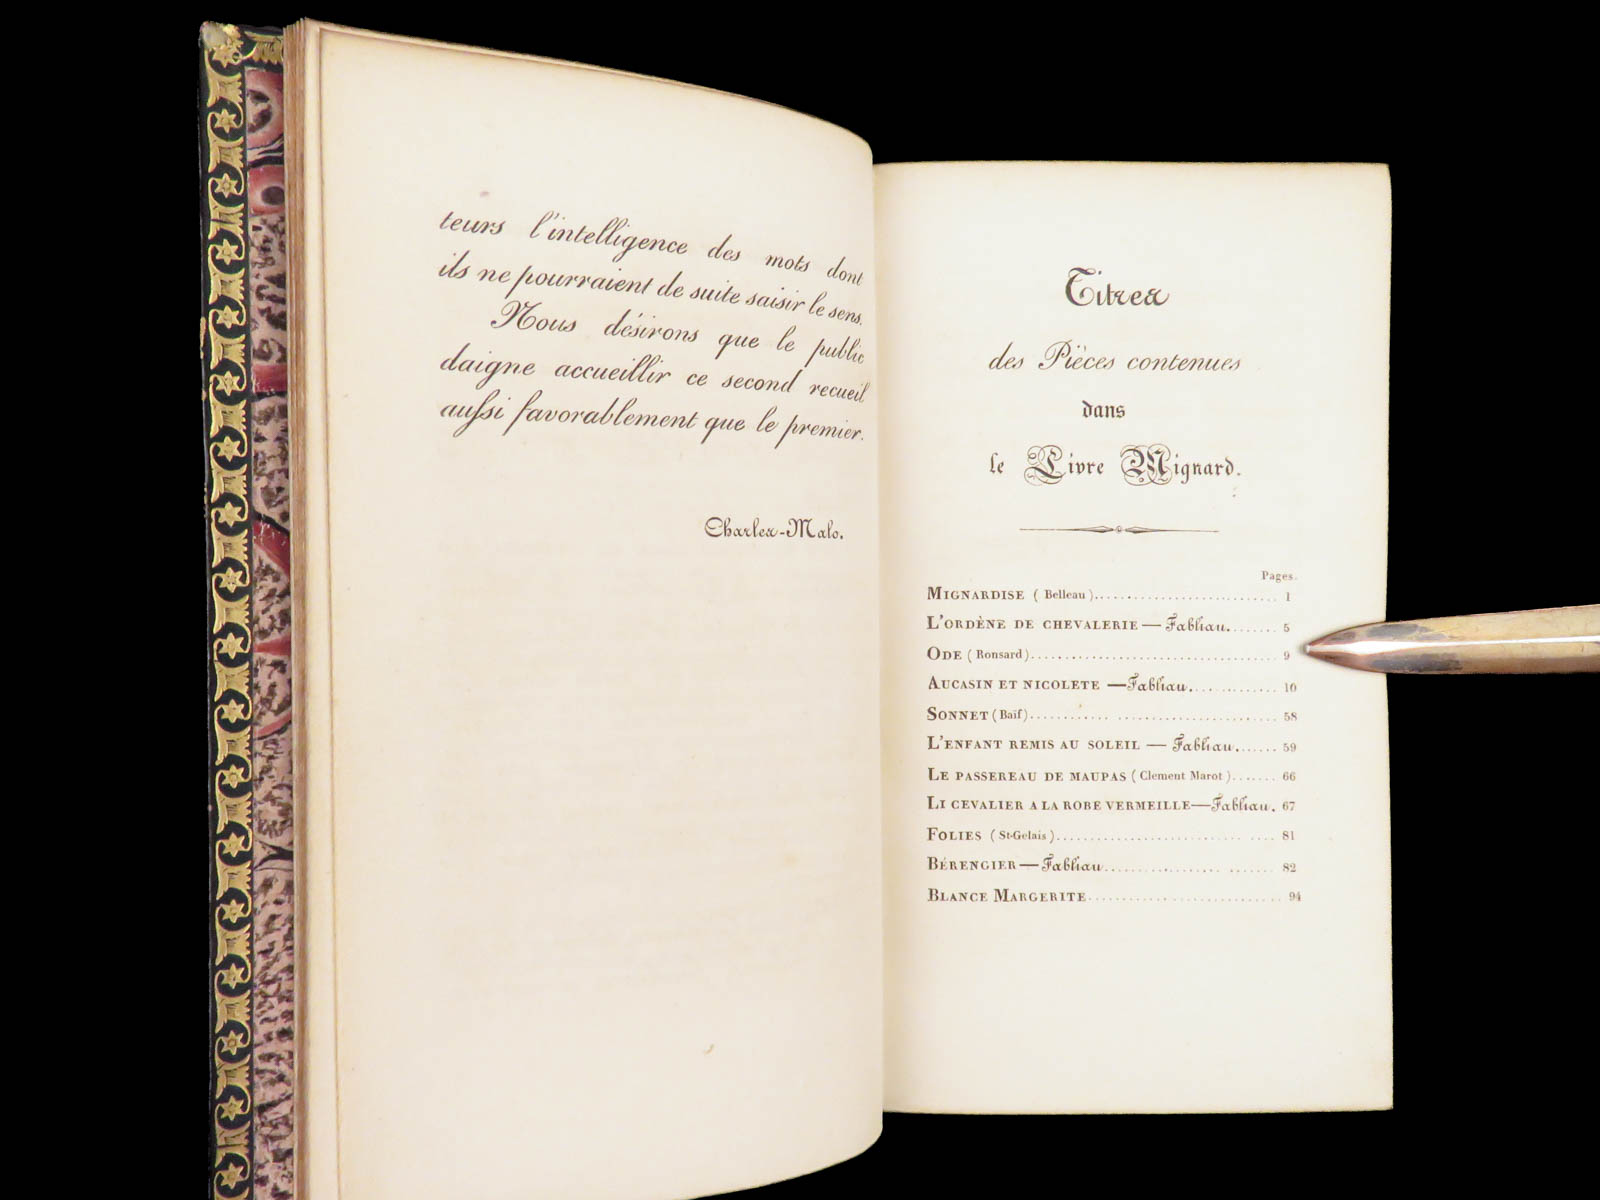 teurs l'intelligence des mots dont
ils ne pourraient de suite saisir le sens.
Nous désirons que le public
daigne accueillir ce second recueil
aussi favorablement que le premier.
Charles-Malo.
Titres
des Pièces contenues
dans
le Livre Mignard.
Pages.
MIGNARDISE ( Belleau ).......................... 1
L'ORDÈNE DE CHEVALERIE — Fabliau........ 5
ODE ( Ronsard )..................................... 9
AUCASIN ET NICOLETE — Fabliau............. 10
SONNET ( Baïf ).................................... 58
L'ENFANT REMIS AU SOLEIL — Fabliau....... 59
LE PASSEREAU DE MAUPAS ( Clement Marot )....... 66
LI CEVALIER A LA ROBE VERMEILLE — Fabliau. 67
FOLIES ( St-Gelais )............................... 81
BÉRENGIER — Fabliau......................... 82
BLANCE MARGERITE............................. 94